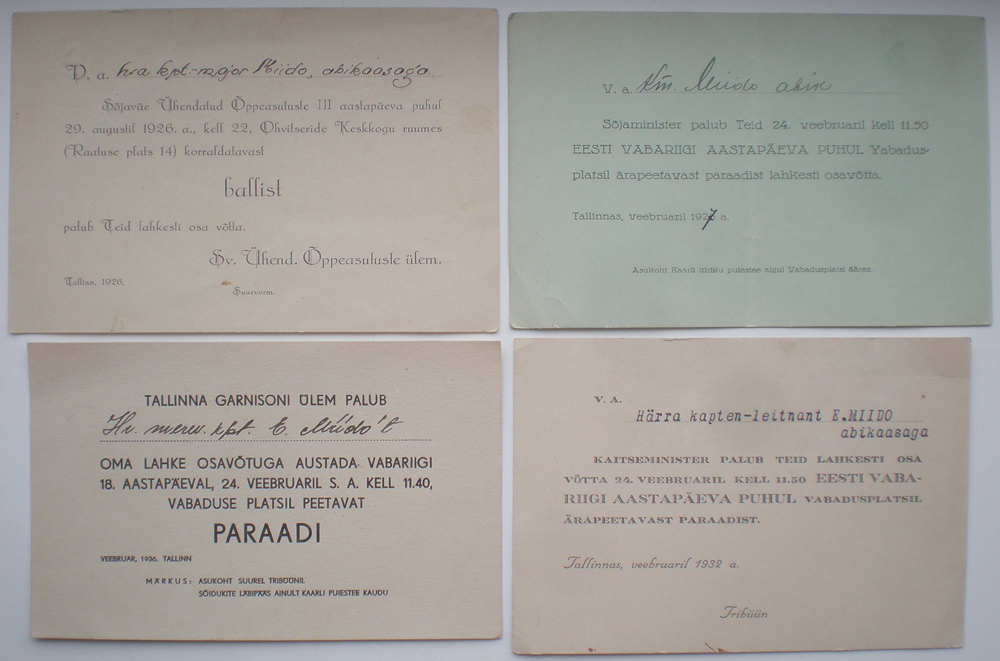 V. a. hra kpt-major Miido, abikaasaga
Sõjaväe Ühendatud Õppeasutuste III aastapäeva puhul
29. augustil 1926. a., kell 22, Ohvitseride Keskkogu ruumes
(Raatuse plats 14) korraldatavast
ballist
palub Teid lahkesti osa võtta.
Sv. Ühend. Õppeasutuste ülem.
Tallinn, 1926.
Suurvorm.
V. a. Km. Miido abik
Sõjaminister palub Teid 24. veebruaril kell 11.50
EESTI VABARIIGI AASTAPÄEVA PUHUL Vabadus-
platsil ärapeetavast paraadist lahkesti osavõtta.
Tallinnas, veebruaril 1927 a.
Asukoht Kaarli kiriku puiestee algul Vabadusplatsi ääres.
TALLINNA GARNISONI ÜLEM PALUB
Hr. merev. kpt. E. Miido't
OMA LAHKE OSAVÕTUGA AUSTADA VABARIIGI
18. AASTAPÄEVAL, 24. VEEBRUARIL S. A. KELL 11.40,
VABADUSE PLATSIL PEETAVAT
PARAADI
VEEBRUAR, 1936. TALLINN
MÄRKUS: ASUKOHT SUUREL TRIBÜÜNIL
SÕIDUKITE LÄBIPÄÄS AINULT KAARLI PUIESTEE KAUDU
V. A.
Härra kapten-leitnant E.MIIDO
abikaasaga
KAITSEMINISTER PALUB TEID LAHKESTI OSA
VÕTTA 24. VEEBRUARIL KELL 11.50 EESTI VABA-
RIIGI AASTAPÄEVA PUHUL VABADUSPLATSIL
ÄRAPEETAVAST PARAADIST.
Tallinnas, veebruaril 1932 a.
Tribüün